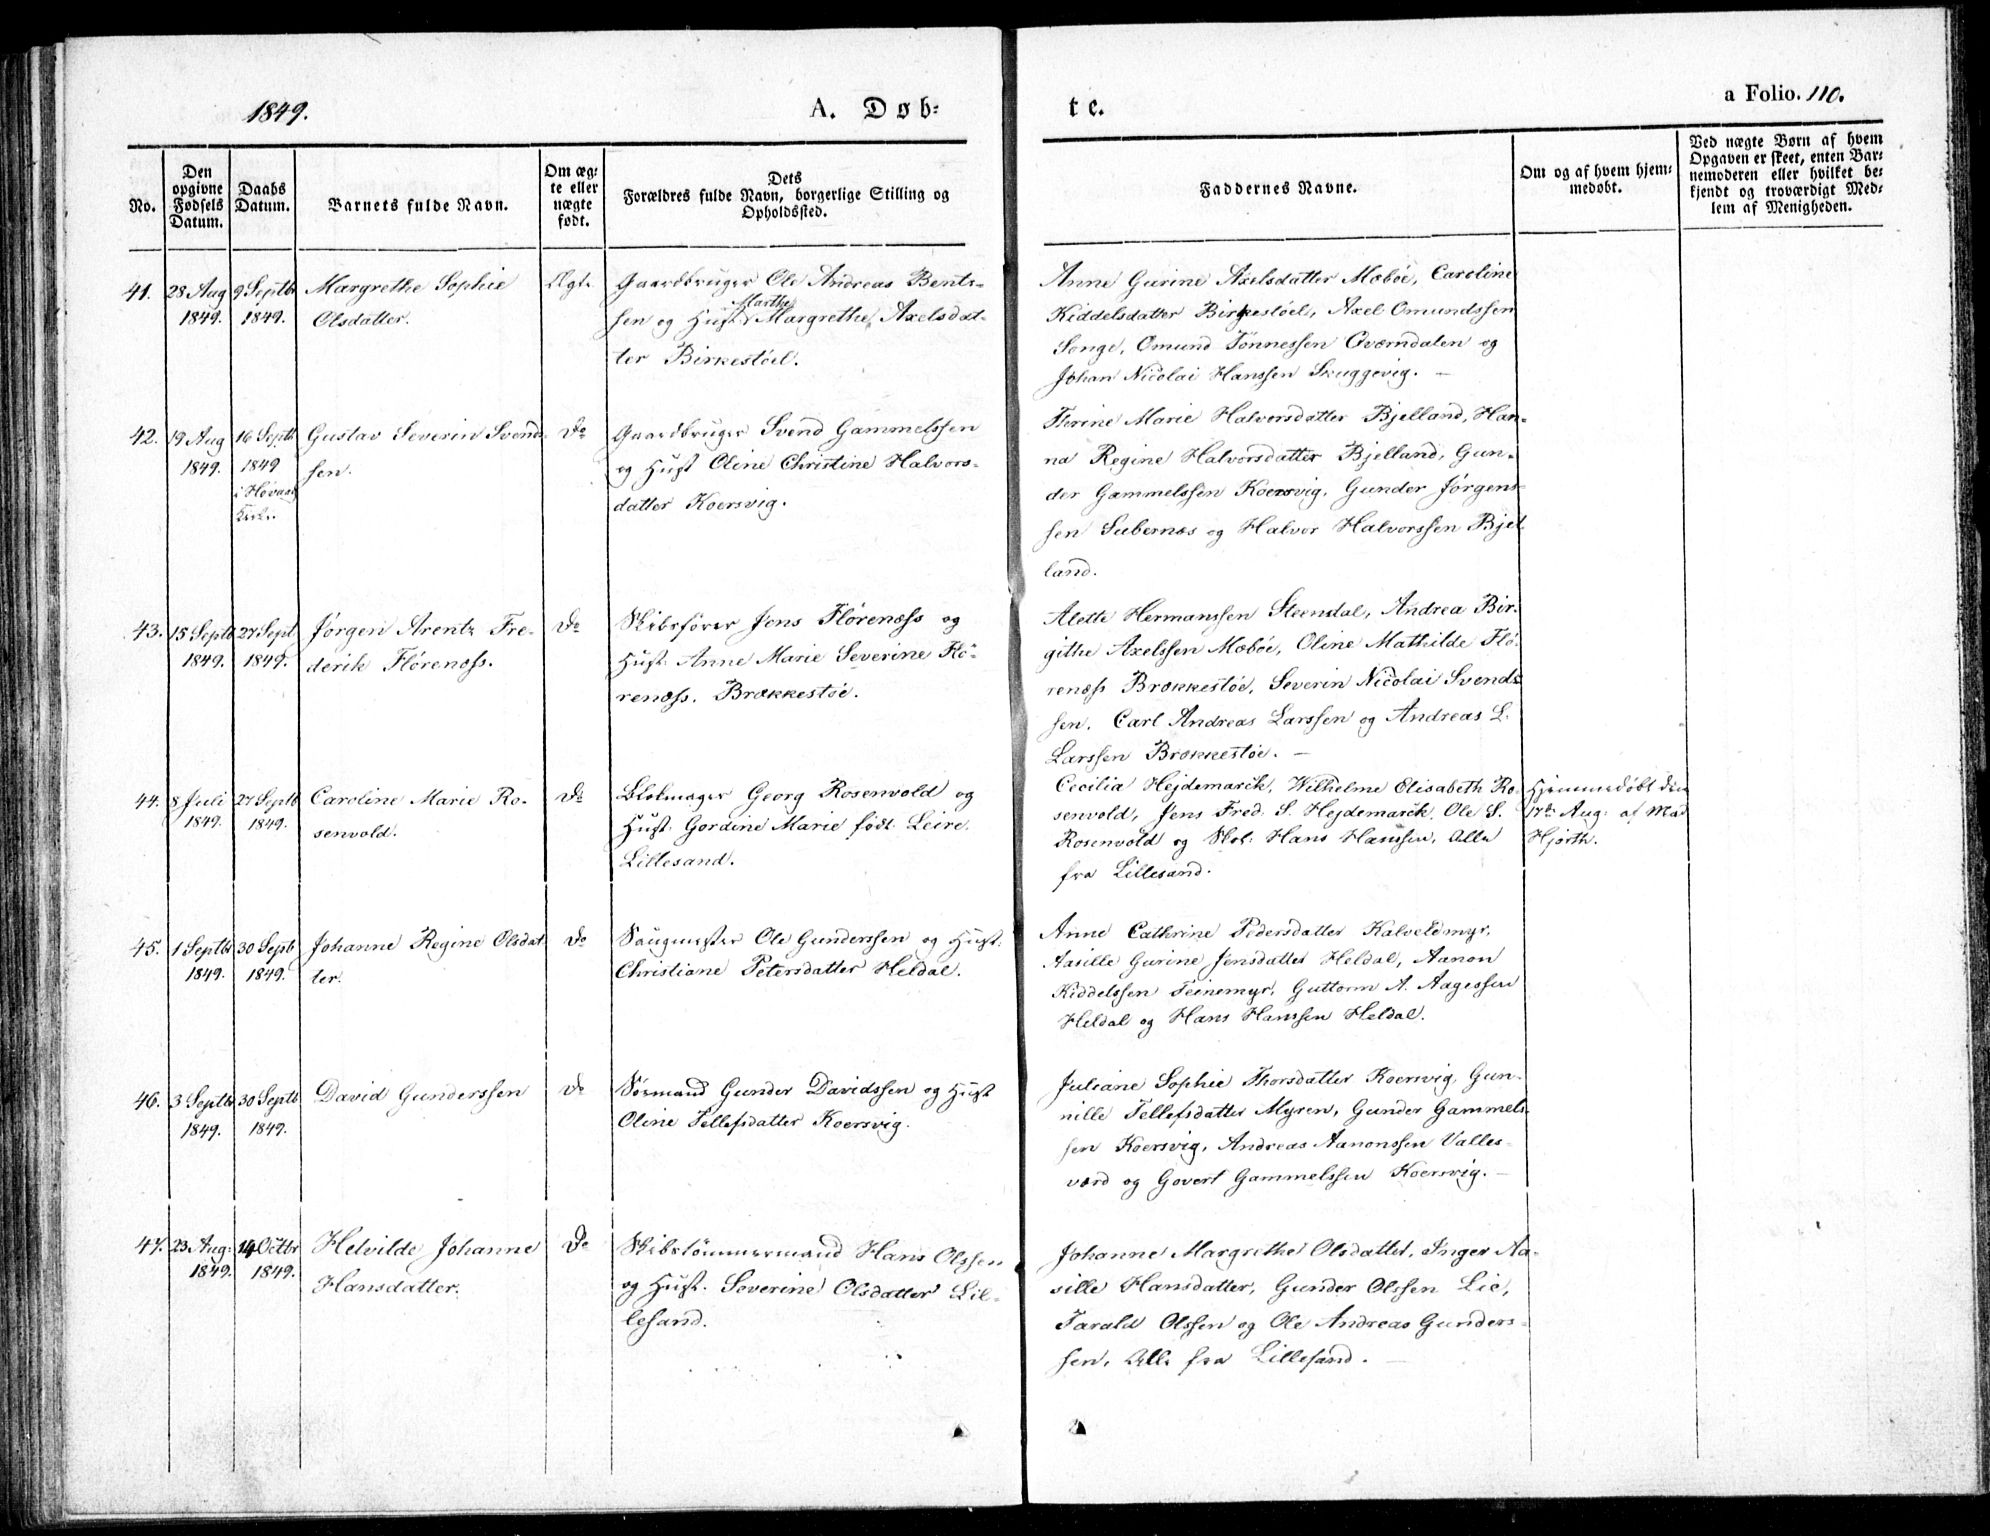 1849.
A. Døb-
te.
a Folio. 110.
No.
Den opgivne Fødsels Datum.
Daabs Datum.
Barnets fulde Navn.
Om ægte eller uægte født.
Dets Forældres fulde Navn, borgerlige Stilling og Opholdssted.
Faddernes Navne.
Om og af hvem hjemmedøbt.
Ved uægte Børn af hvem Opgaven er skeet, enten Barnemoderen eller hvilket bekjendt og troværdigt Medlem af Menigheden.
41. 28 Aug 1849. 9 Septbr 1849.
Margrethe Sophie
Olsdatter.
Ægte
Gaardbruger Ole Andreas Bents-
Marthe
sen og Hust: Margrethe Axelsdat-
ter Birkestöel.
Anne Gurine Axelsdatter Mæböe, Caroline
Kiddelsdatter Birkestöel, Axel Omundssen
Songe, Omund Tönnessen Qværndalen og
Johan Nicolai Hanssen Skuggevig. –
42. 19 Aug 1849. 16 Septb 1849 i Høvaag Kirke.
Gustav Severin Svend-
sen.
Do
Gaardbruger Svend Gammelssen
og Hust Oline Christine Halvors-
datter Koersvig.
Terine Marie Halvorsdatter Bjelland, Han-
na Regine Halvorsdatter Bjelland, Gun-
der Gammelssen Koersvig, Gunder Jörgens-
sen Subernæs og Halvor Halvorssen Bjel
land.
43. 15 Septb 1849. 27 Sept 1849.
Jørgen Arentz Fre-
derik Flörenæss.
Do
Skibsfører Jens Flörenæss og
Hust: Anne Marie Severine Flö-
renæss. Brækkestöe.
Alette Hermanssen Steendal, Andrea Bir-
githe Axelssen Mæböe, Oline Mathilde Flö-
renæss Brækkestöe, Severin Nicolai Svends
sen, Carl Andreas Larssen og Andreas L.
Larssen Brækkestöe. –
44. 8 Juli 1849. 27 Septb 1849.
Caroline Marie Ro-
senvold.
Do
Blokmager Georg Rosenvold og
Hust: Gordine Marie født Leire.
Lillesand.
Cecilia Hejdemarck, Wilhelme Elisabeth Ro-
senvold, Jens Fred: S. Hejdemarck, Ole S.
Rosenvold og Hans Hanssen, Alle
fra Lillesand.
Hjemmedöbt den
17de Aug: af Mad
Hjorth.
45. 1 Septbr 1849. 30 Septb 1849.
Johanne Regine Olsdat-
ter.
Do
Saugmester Ole Gunderssen og Hust:
Christiane Petersdatter Heldal.
Anne Cathrine Pedersdatter Kalveldmyr,
Aasille Gurine Jensdatter Heldal, Aanon
Kiddelssen Teinemyr, Guttorm A. Aagessen
Heldal og Hans Hanssen Heldal.
46. 3 Septbr 1849. 30 Septb 1849.
David Gunderssen
Do
Sömand Gunder Davidssen og Hust
Oline Tellefsdatter Koersvig.
Juliane Sophie Thorsdatter Koersvig, Gun-
nille Tellefsdatter Myren, Gunder Gammels-
sen Koersvig, Andreas Aanonssen Valles-
værd og Govert Gammelssen Koersvig. –
47. 23 Aug: 1849. 14 Octbr 1849.
Helvilde Johanne
Hansdatter.
Do
Skibstömmermand Hans Olssen
og Hust. Severine Olsdatter Lil-
lesand.
Johanne Margrethe Olsdatter, Inger Aa-
sille Hansdatter, Gunder Olssen Lie,
Tarald Olssen og Ole Andreas Gunders-
sen, Alle fra Lillesand. –